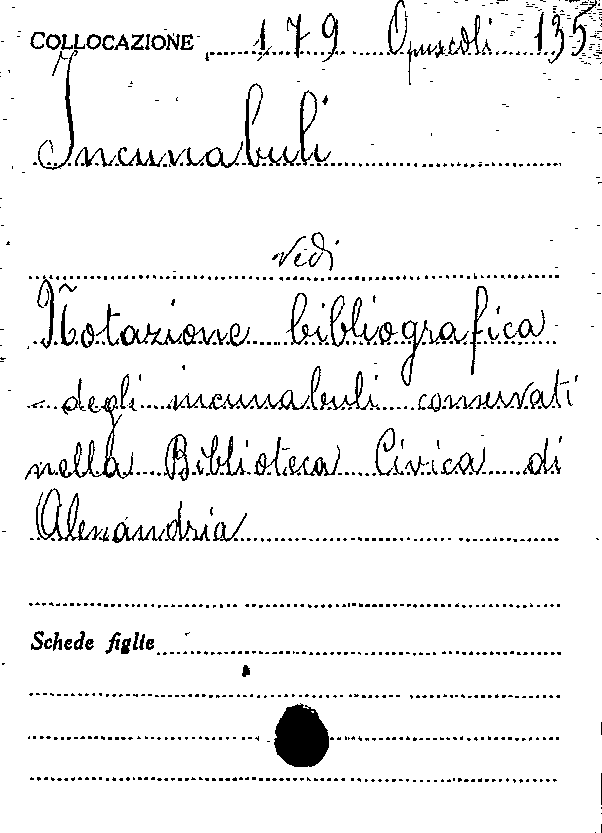 COLLOCAZIONE 179 Opuscoli 135
Incunabuli
vedi
Notazione bibliografica
degli incunabuli conservati
nella Biblioteca Civica di
Alexandria
Schede figlie